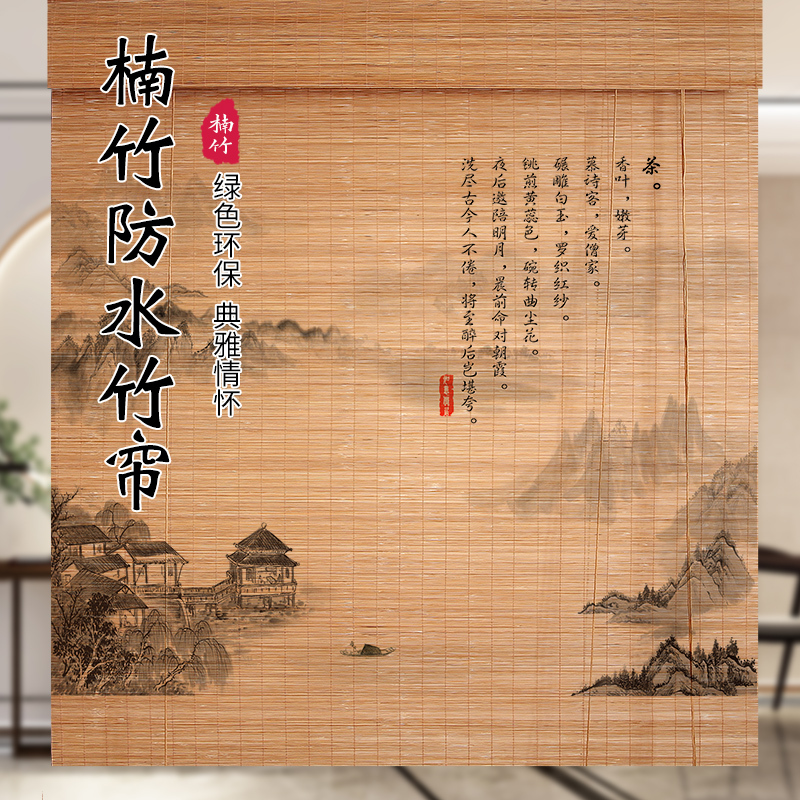 楠竹防水竹帘
楠竹
绿色环保 典雅情怀
茶。
香叶，嫩芽。
慕诗客，爱僧家。
碾雕白玉，罗织红纱。
铫煎黄蕊色，碗转曲尘花。
夜后邀陪明月，晨前命对朝霞。
洗尽古今人不倦，将至醉后岂堪夸。